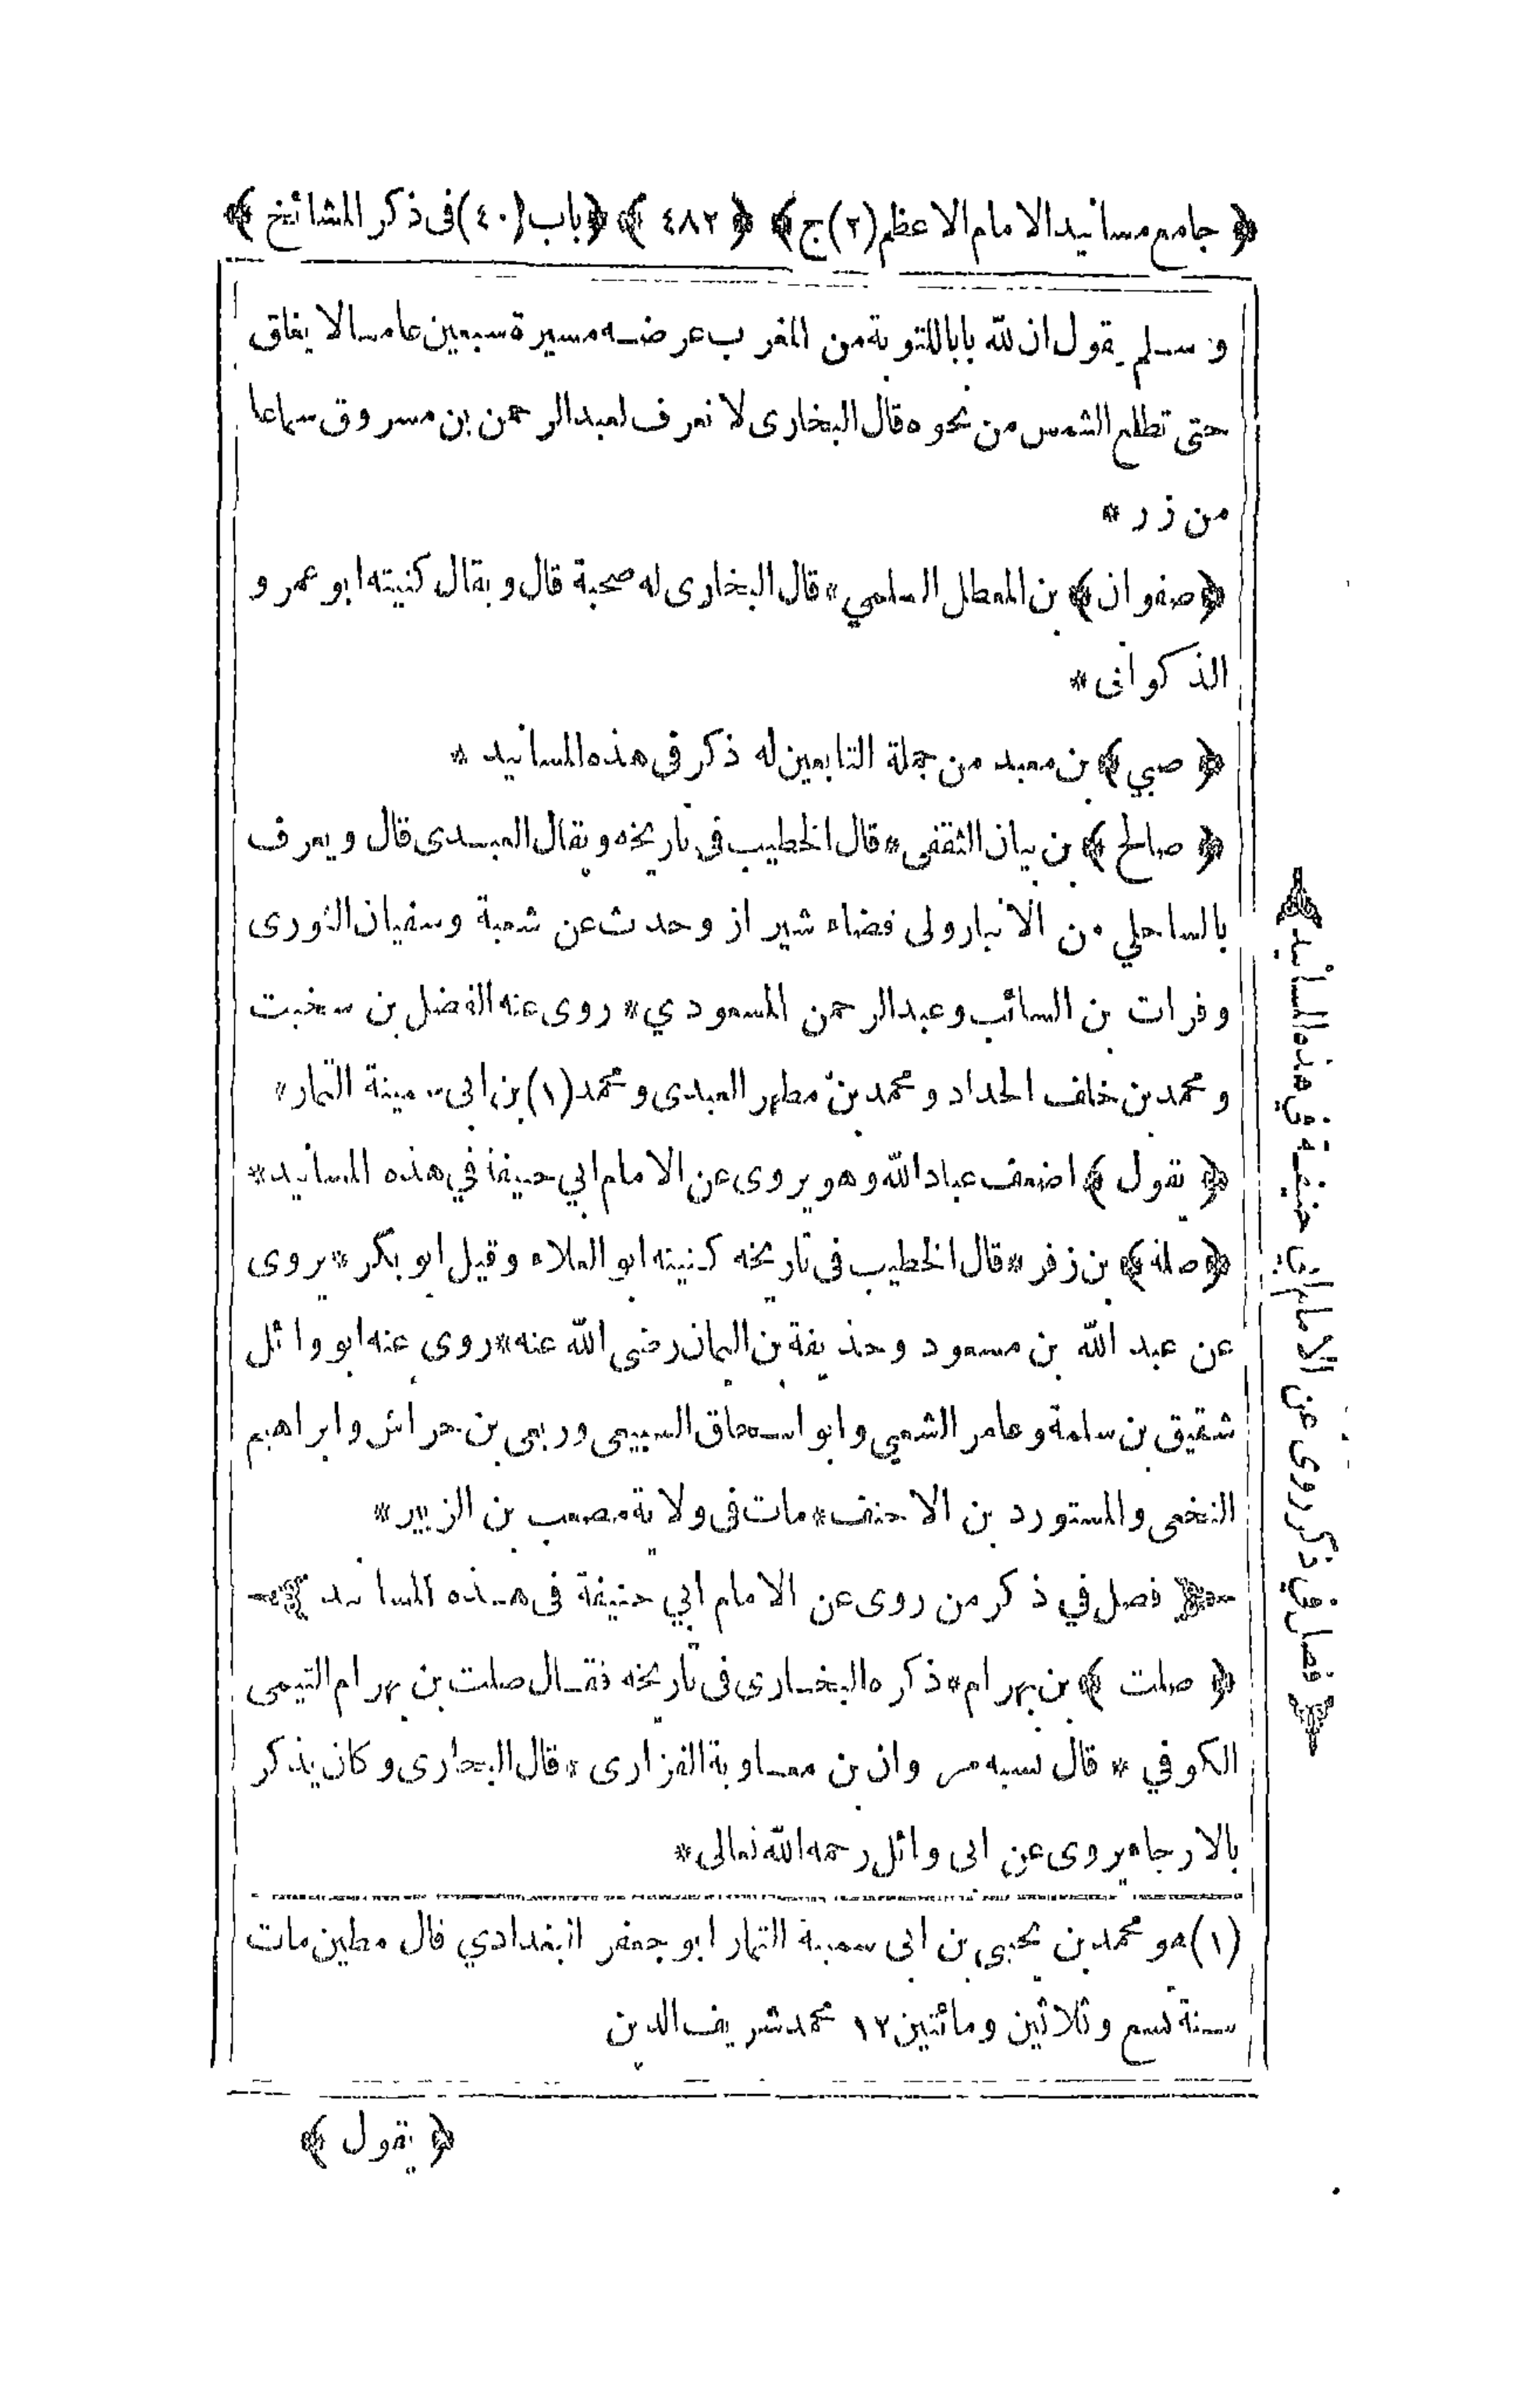 ﴿ جامع مسانيد الامام الاعظم (٢) ج ﴾ ﴿ ٤٨٢ ﴾ ﴿ باب (٤٠) فى ذكر المشائخ ﴾
و سلم يقول ان لله بابا للتوبة من المغرب عرضه مسيرة سبعين عاما لا يغلق
حتى تطلع الشمس من نحوه قال البخارى لا نعرف لعبد الرحمن بن مسروق سماعا
من زر *
﴿ صفوان ﴾ بن المعطل السلمي * قال البخارى له صحبة قال ويقال كنيته ابو عمر و
الذكوانى *
﴿ صبي ﴾ بن معبد من جملة التابعين له ذكر فى هذه المسانيد *
﴿ صالح ﴾ بن بيان الثقفى * قال الخطيب فى تاريخه ويقال العبدى قال ويعرف
بالساحلي من الانبار ولى قضاء شيراز وحدث عن شعبة وسفيان الثورى
وفرات بن السائب وعبد الرحمن المسعودي * روى عنه الفضل بن سخيت
و محمد بن خلف الحداد و محمد بن مطهر العبدى و محمد (١) بن ابى سمينة التمار *
﴿ يقول ﴾ اضعف عباد الله وهو يروى عن الامام ابي حنيفة في هذه المسانيد *
﴿ صلة ﴾ بن زفر * قال الخطيب فى تاريخه كنيته ابو العلاء وقيل ابو بكر * يروى
عن عبد الله بن مسعود وحذيفة بن اليمان رضى الله عنه * روى عنه ابو وائل
شقيق بن سلمة وعامر الشعبي وابو اسحاق السبيعى وربعى بن حراش وابراهيم
النخعى والمستورد بن الاحنف * مات فى ولاية مصعب بن الزبير *
فصل في ذكر من روى عن الامام ابي حنيفة فى هذه المسانيد
﴿ صلت ﴾ بن بهرام * ذكره البخارى فى تاريخه فقال صلت بن بهرام التيمى
الكوفي * قال نسبه مروان بن معاوية الفزارى * قال البخارى وكان يذكر
بالارجاء يروى عن ابى وائل رحمه الله تعالى *
(١) هو محمد بن يحيى بن ابى سمينة التمار ابو جعفر البغدادي قال مطين مات
سنة تسع وثلاثين ومائتين ١٢ محمد شريف الدين
﴿ يقول ﴾
فصل في ذكر روى عن الامام ابي حنيفة في هذه المسانيد